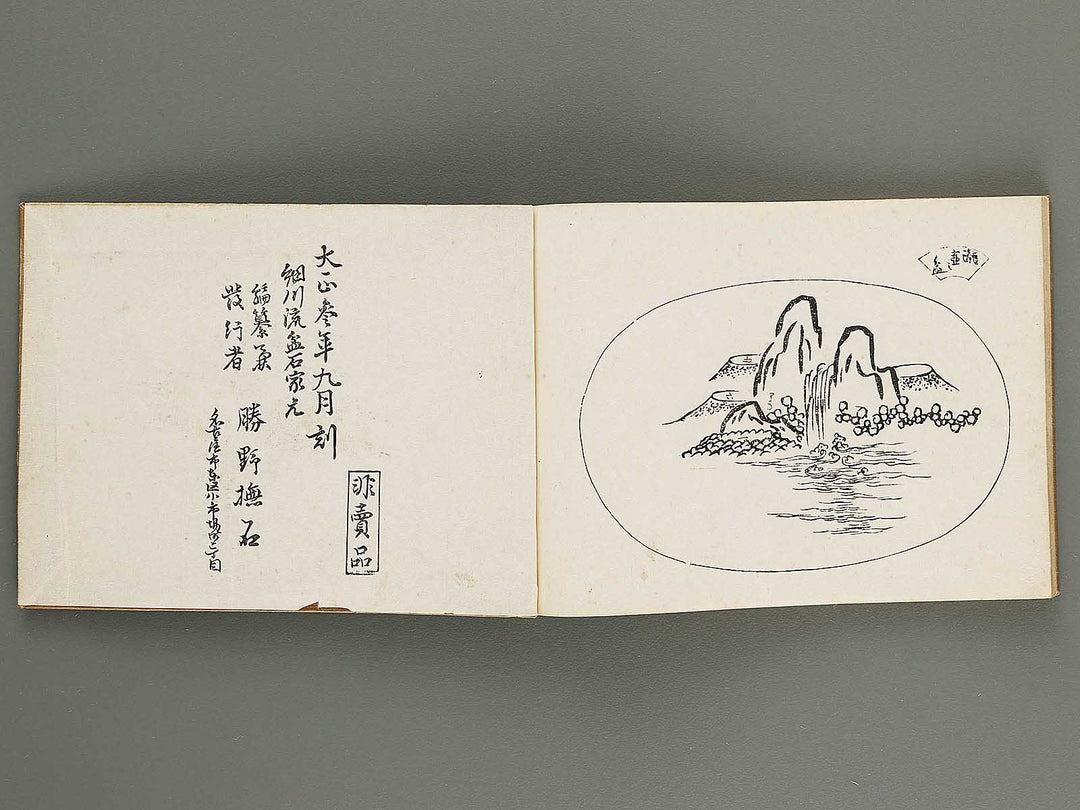 非賣品
大正參年九月刻
細川流盆石家元
編纂兼
發行者
勝野撫石
名古屋市東区小市場町二丁目